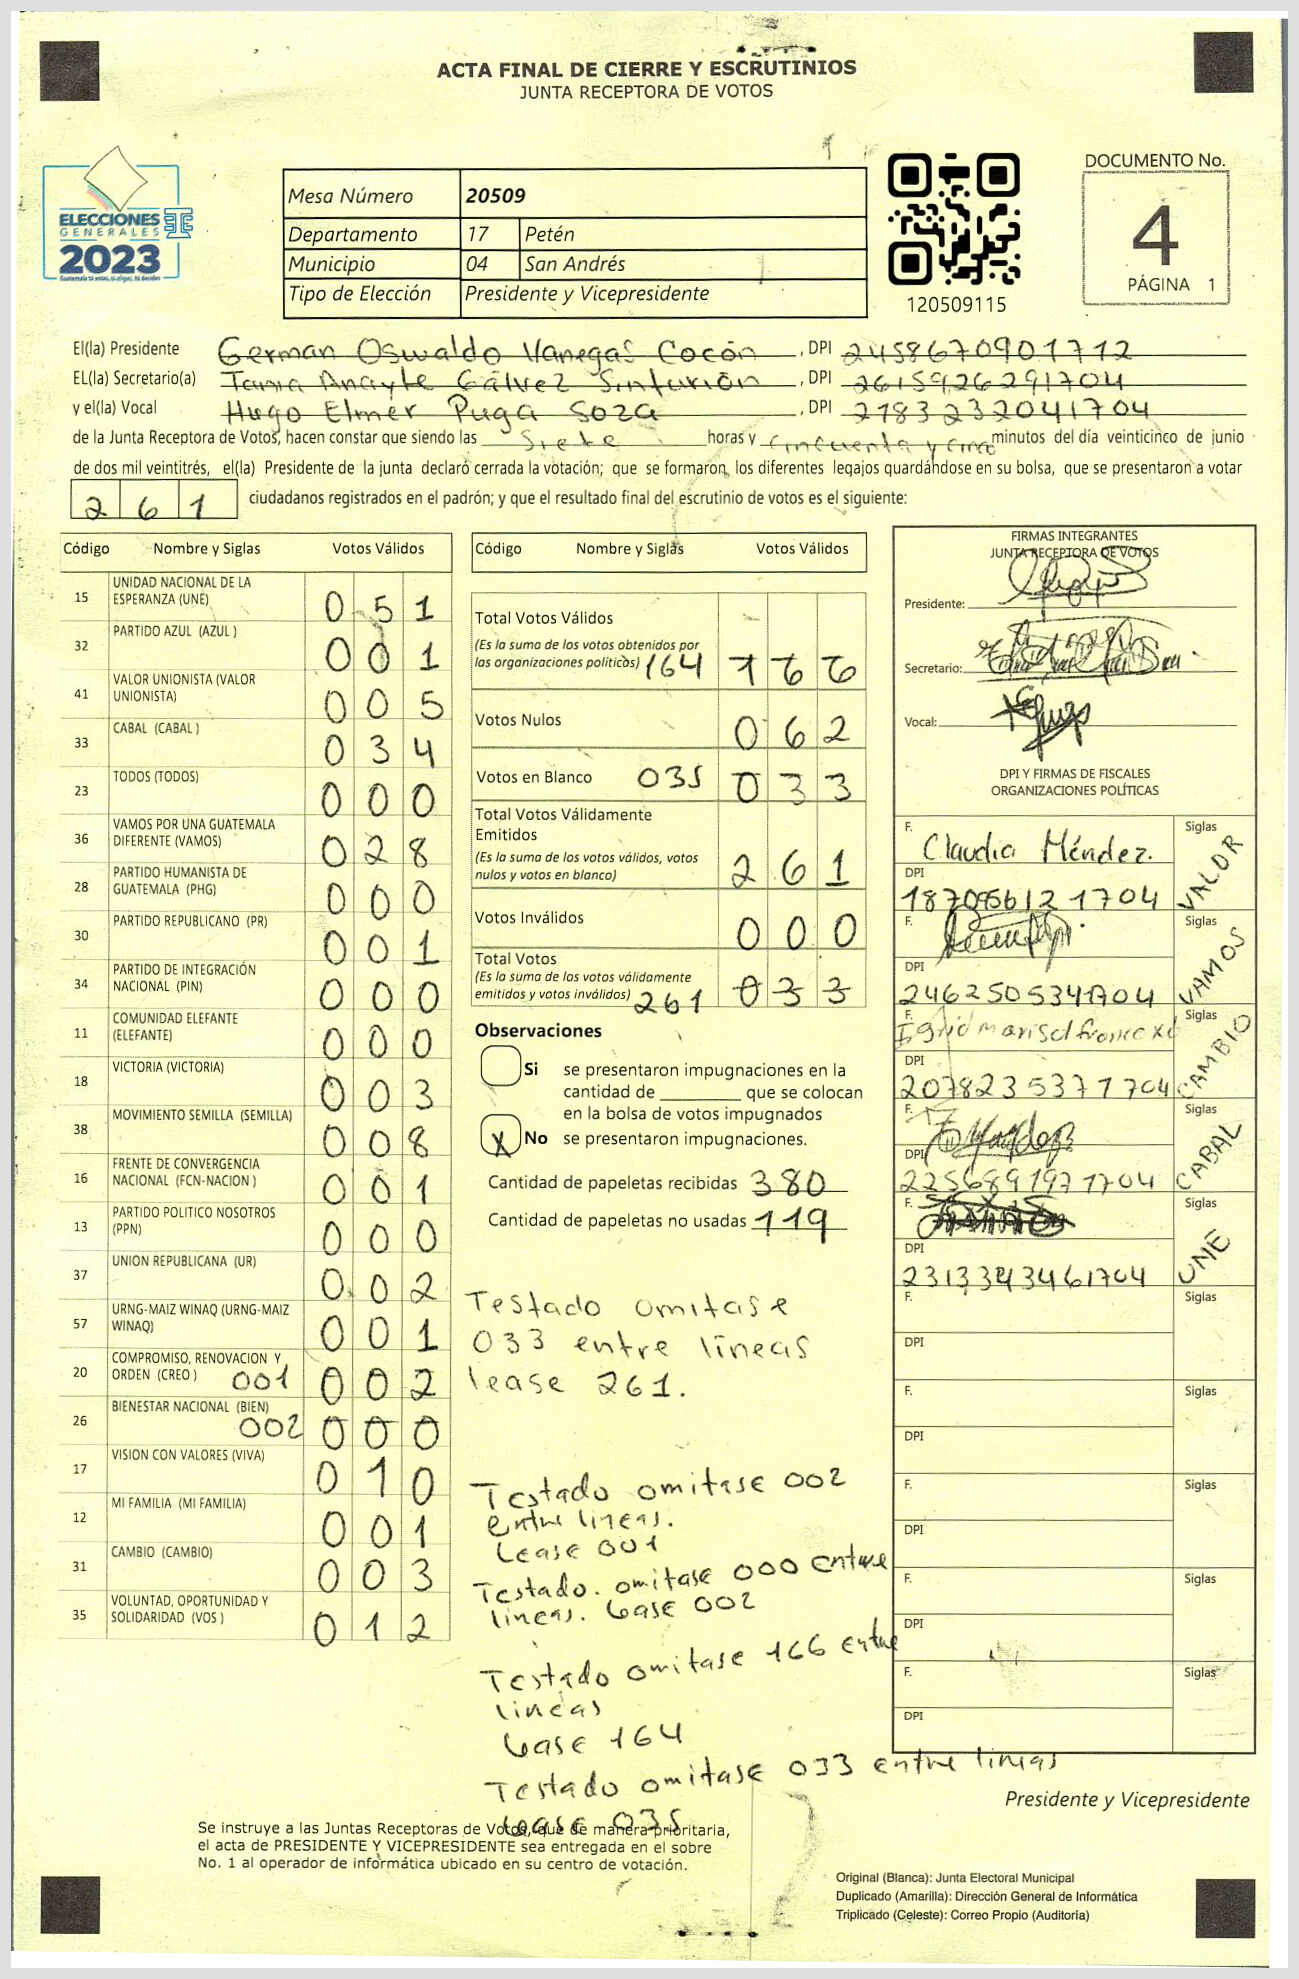 ACTA FINAL DE CIERRE Y ESCRUTINIOS
JUNTA RECEPTORA DE VOTOS
ELECCIONES
GENERALES
2023
Guatemala tú votas, tú eliges, tú decides
Mesa Número 20509
Departamento 17 Petén
Municipio 04 San Andrés
Tipo de Elección Presidente y Vicepresidente
120509115
DOCUMENTO No.
4
PÁGINA 1
El(la) Presidente German Oswaldo Vanegas Cocón, DPI 2458670901712
EL(la) Secretario(a) Tania Anayte Gálvez, DPI 2615926291704
y el(la) Vocal Hugo Elmer Puga Soza, DPI 2783232041704
de la Junta Receptora de Votos, hacen constar que siendo las Siete horas y cincuenta y cinco minutos del día veinticinco de junio
de dos mil veintitrés, el(la) Presidente de la junta declaró cerrada la votación; que se formaron los diferentes legajos guardándose en su bolsa, que se presentaron a votar
261 ciudadanos registrados en el padrón; y que el resultado final del escrutinio de votos es el siguiente:
Código Nombre y Siglas Votos Válidos
15 UNIDAD NACIONAL DE LA
ESPERANZA (UNE) 051
32 PARTIDO AZUL (AZUL ) 001
41 VALOR UNIONISTA (VALOR
UNIONISTA) 005
33 CABAL (CABAL ) 034
23 TODOS (TODOS) 000
36 VAMOS POR UNA GUATEMALA
DIFERENTE (VAMOS) 028
28 PARTIDO HUMANISTA DE
GUATEMALA (PHG) 000
30 PARTIDO REPUBLICANO (PR) 001
34 PARTIDO DE INTEGRACIÓN
NACIONAL (PIN) 000
11 COMUNIDAD ELEFANTE
(ELEFANTE) 000
18 VICTORIA (VICTORIA) 003
38 MOVIMIENTO SEMILLA (SEMILLA) 008
16 FRENTE DE CONVERGENCIA
NACIONAL (FCN-NACION ) 001
13 PARTIDO POLITICO NOSOTROS
(PPN) 000
37 UNION REPUBLICANA (UR) 002
57 URNG-MAIZ WINAQ (URNG-MAIZ
WINAQ) 001
20 COMPROMISO, RENOVACION Y
ORDEN (CREO ) 001 002
26 BIENESTAR NACIONAL (BIEN)
002 000
17 VISION CON VALORES (VIVA) 010
12 MI FAMILIA (MI FAMILIA) 001
31 CAMBIO (CAMBIO) 003
35 VOLUNTAD, OPORTUNIDAD Y
SOLIDARIDAD (VOS ) 012
Código Nombre y Siglas Votos Válidos
Total Votos Válidos
(Es la suma de los votos obtenidos por
las organizaciones políticas) 164 166
Votos Nulos 062
Votos en Blanco 035 033
Total Votos Válidamente
Emitidos
(Es la suma de los votos válidos, votos
nulos y votos en blanco) 261
Votos Inválidos 000
Total Votos
(Es la suma de los votos válidamente
emitidos y votos inválidos) 261 033
Observaciones
Si se presentaron impugnaciones en la
cantidad de ________ que se colocan
en la bolsa de votos impugnados
X No se presentaron impugnaciones.
Cantidad de papeletas recibidas 380
Cantidad de papeletas no usadas 119
Testado omitase
033 entre lineas
lease 261.
Testado omitase 002
entre lineas.
Lease 001
Testado. omitase 000 entre
lineas. Lease 002
Testado omitase 166 entre
lineas
Lease 164
Testado omitase 033 entre lineas
Lease 035
FIRMAS INTEGRANTES
JUNTA RECEPTORA DE VOTOS
Presidente:
Secretario:
Vocal:
DPI Y FIRMAS DE FISCALES
ORGANIZACIONES POLÍTICAS
F. Claudia Méndez. Siglas VALOR
DPI
F. Siglas VAMOS
DPI 2462505341704
F. Siglas CAMBIO
DPI 2078235371704
F. Siglas CABAL
DPI 2256891971704
F. Siglas UNE
DPI 2313343461704
F. Siglas
DPI
F. Siglas
DPI
F. Siglas
DPI
F. Siglas
DPI
F. Siglas
DPI
Presidente y Vicepresidente
Se instruye a las Juntas Receptoras de Votos, que de manera prioritaria,
el acta de PRESIDENTE Y VICEPRESIDENTE sea entregada en el sobre
No. 1 al operador de informática ubicado en su centro de votación.
Original (Blanca): Junta Electoral Municipal
Duplicado (Amarilla): Dirección General de Informática
Triplicado (Celeste): Correo Propio (Auditoría)